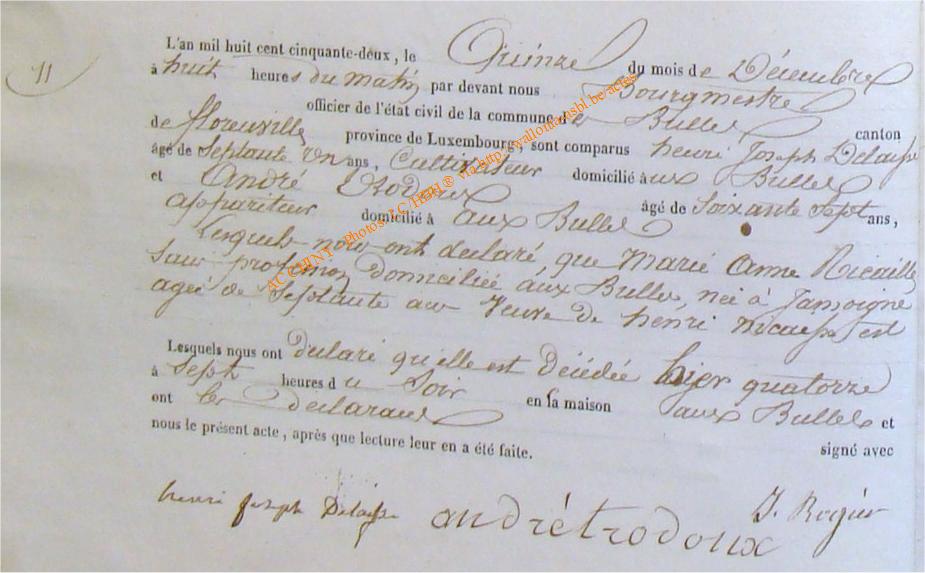 11
L'an mil huit cent cinquante-deux, le Quinze du mois de Décembre
à huit heures du matin par devant nous Bourgmestre
officier de l'état civil de la commune de Bulles canton
de florenville province de Luxembourg, sont comparus henri Joseph Delaisse
âgé de Septante un ans, Cultivateur domicilié aux Bulles
et André Trodoux âgé de Soixante Sept ans,
appariteur domicilié à aux Bulles
Lesquels nous ont declaré que Marie Anne Ricaille
sans profession Domiciliée aux Bulles, née à Jamoigne
agée de Septante Veuve de henri est
Lesquels nous ont declaré qu'elle est Décédée hier quatorze
à Sept heures du Soir en sa maison aux Bulles et
ont les declarans signé avec
nous le présent acte, après que lecture leur en a été faite.
henri joseph Delaisse andrétrodoux J. Rogier
AC CHINY - Photos via http://wallonia.asbl.be/actes